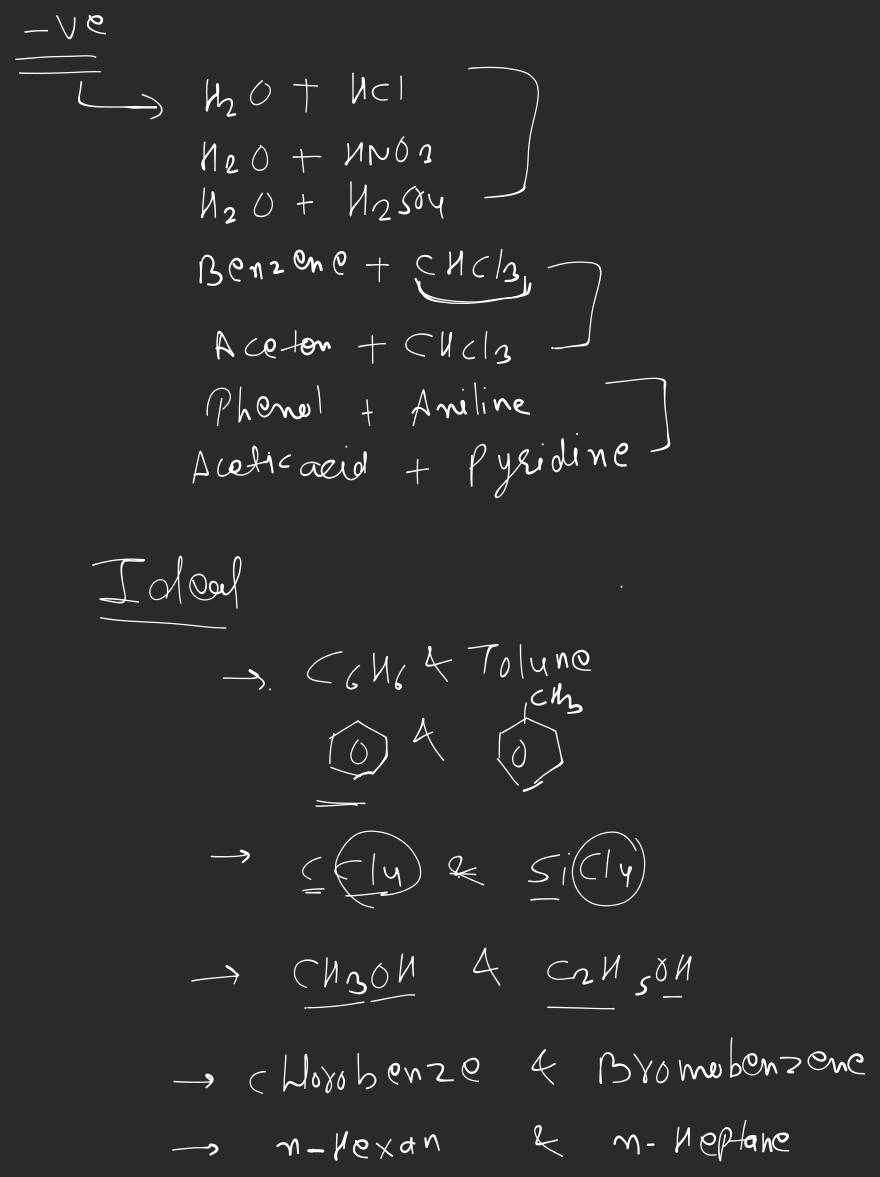 -ve
H2O + HCl
H2O + HNO3
H2O + H2SO4
Benzene + CHCl3
Aceton + CHCl3
Phenol + Aniline
Acetic acid + Pyridine
Ideal
→ C6H6 & Tolune
& CH3
→ CCl4 & SiCl4
→ CH3OH & C2H5OH
→ chlorobenze & Bromobenzene
→ n-Hexan & n-Heptane